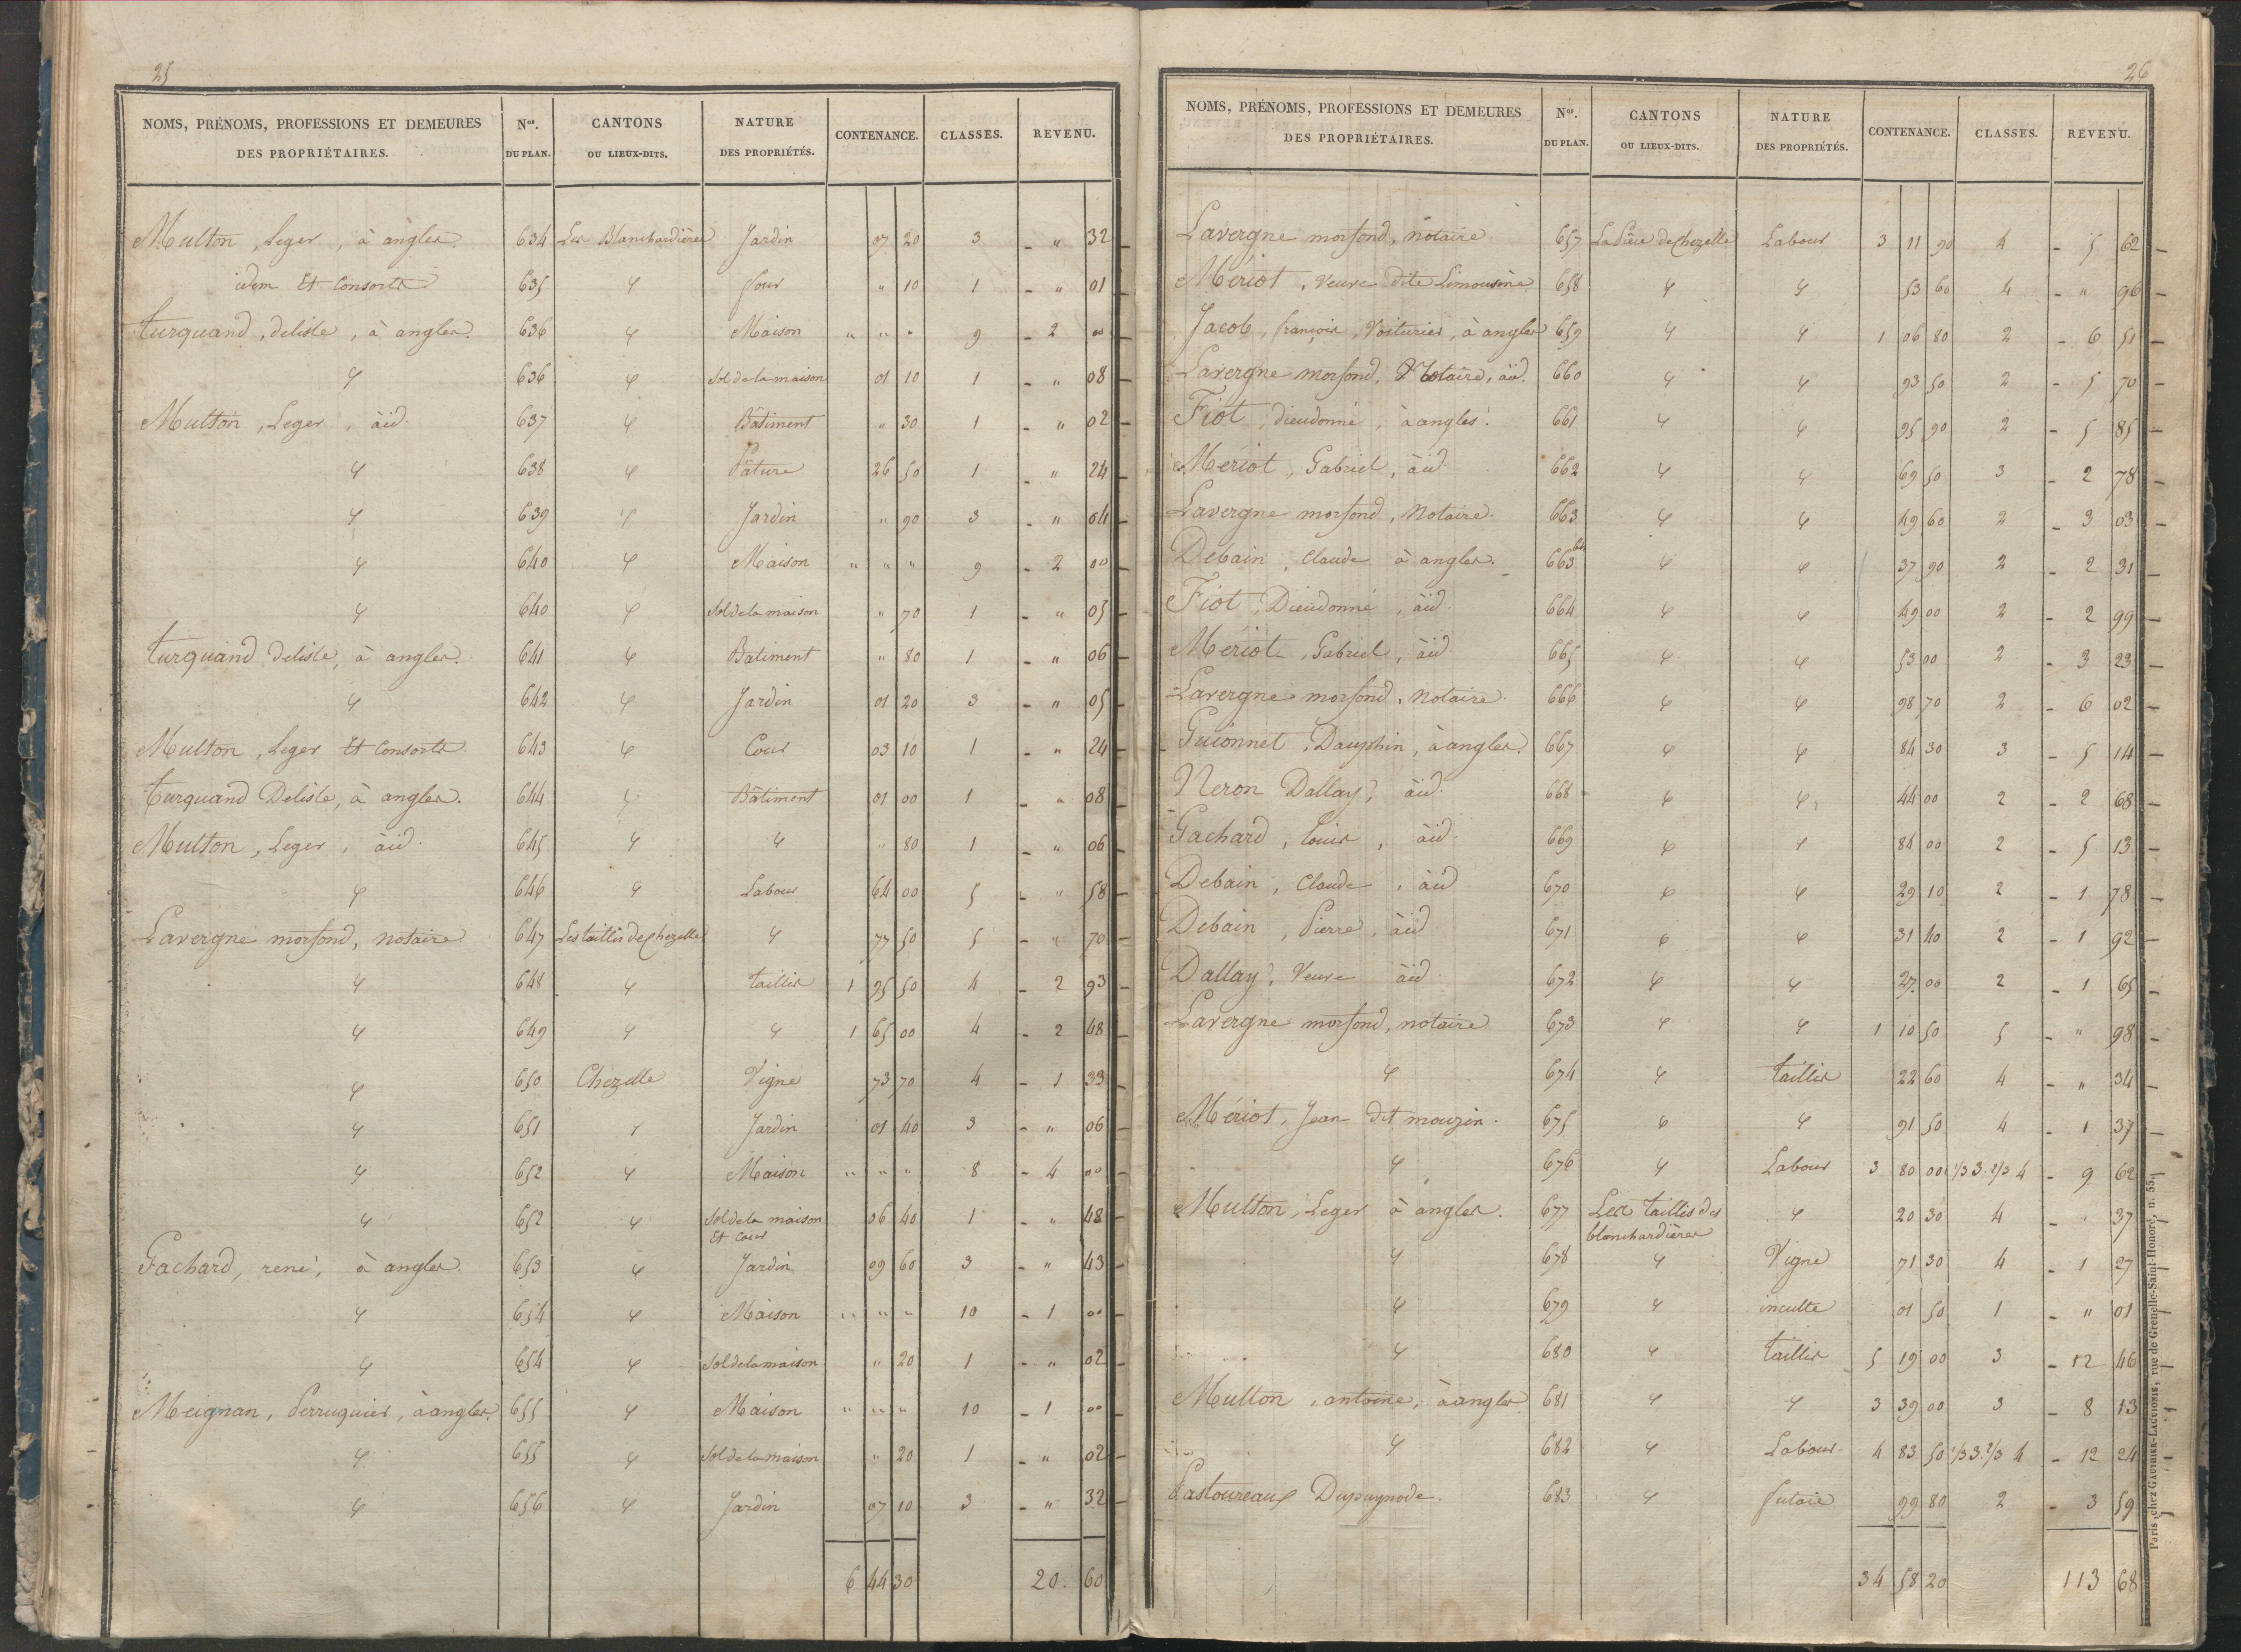 25
NOMS, PRÉNOMS, PROFESSIONS ET DEMEURES DES PROPRIÉTAIRES. Nos. DU PLAN. CANTONS OU LIEUX-DITS. NATURE DES PROPRIÉTÉS. CONTENANCE. CLASSES. REVENU.
Multon, Leger, à angles. 634 Les Blanchardières Jardin 07 20 3 - " 32
idem Et Consorts 635 " four " 10 1 - " 01
turquand, delisle, à angles. 636 " Maison " " " 9 - 2 00
" 636 " Sol de la maison 01 10 1 - " 08
Multon, Leger, àid. 637 " Bâtiment " 30 1 - " 02
" 638 " Pâture 26 50 1 - " 24
" 639 " Jardin " 90 3 - " 04
" 640 " Maison " " " 9 - 2 00
" 640 " Sol de la maison " 70 1 - " 05
turquand Delisle, à angles. 641 " Batiment " 80 1 - " 06
" 642 " Jardin 01 20 3 - " 05
Multon, Leger Et Consorts. 643 " Cour 03 10 1 - " 24
turquand Delisle, à angles. 644 " Bâtiment 01 00 1 - " 08
Multon, Leger, àid. 645 " " " 80 1 - " 06
" 646 " Labour 64 00 5 - " 58
Lavergne morfond, notaire 647 Les taillis de Chezelle " 77 50 5 - " 70
" 648 " taillis 1 95 50 4 - 2 93
" 649 " " 1 65 00 4 - 2 48
" 650 Chezelle Vigne 73 70 4 - 1 33
" 651 " Jardin 01 40 3 - " 06
" 652 " Maison " " " 8 - 4 00
" 652 " Sol de la maison Et Cour 06 40 1 - " 48
Gachard, rené, à angles. 653 " Jardin 09 60 3 - " 43
" 654 " Maison " " " 10 - 1 00
" 654 " Sol de la maison " 20 1 - " 02
Meignan, Perruquier, à angles. 655 " Maison " " " 10 - 1 00
" 655 " Sol de la maison " 20 1 - " 02
" 656 " Jardin 07 10 3 - " 32
6 44 30 20. 60
26
NOMS, PRÉNOMS, PROFESSIONS ET DEMEURES DES PROPRIÉTAIRES. Nos. DU PLAN. CANTONS OU LIEUX-DITS. NATURE DES PROPRIÉTÉS. CONTENANCE. CLASSES. REVENU.
Lavergne morfond, notaire. 657 La Pièce de Chezelle Labour 3 11 90 4 - 5 62
Mériot, Veuve dite Limousine 658 " " 53 60 4 - " 96
Jacob, françois, Voiturier, à angles 659 " " 1 06 80 2 - 6 51
Lavergne morfond, Notaire, àid. 660 " " 93 50 2 - 5 70
Fiot, dieudonné, à angles. 661 " " 95 90 2 - 5 85
Mériot, Gabriel, àid 662 " " 69 50 3 - 2 78
Lavergne morfond, Notaire. 663 " " 49 60 2 - 3 03
Debain, Claude à angles. 663 bis " " 37 90 2 - 2 31
Fiot, Dieudonné, àid. 664 " " 49 00 2 - 2 99
Mériot, Gabriel, àid. 665 " " 53 00 2 - 3 23
Lavergne morfond, Notaire. 666 " " 98 70 2 - 6 02
Guionnet, Dauphin, à angles. 667 " " 84 30 3 - 5 14
Neron Dallay, àid. 668 " " 44 00 2 - 2 68
Gachard, Louis, àid. 669 " " 84 00 2 - 5 13
Debain, Claude, àid 670 " " 29 10 2 - 1 78
Debain, Pierre, àid. 671 " " 31 40 2 - 1 92
Dallay, Veuve àid. 672 " " 27 00 2 - 1 65
Lavergne morfond, notaire 673 " " 1 10 50 5 - " 98
" 674 " taillis 22 60 4 - " 34
Mériot, Jean dit mouzin. 675 " " 91 50 4 - 1 37
" 676 " Labour 3 80 00 1/3 3. 2/3 4 - 9 62
Multon, Leger à angles. 677 Les taillis des blanchardières " 20 30 4 - " 37
" 678 " Vigne 71 30 4 - 1 27
" 679 " inculte 01 50 1 - " 01
" 680 " taillis 5 19 00 3 - 12 46
Multon, antoine, à angles 681 " " 3 39 00 3 - 8 13
" 682 " Labour 4 83 50 1/3 3. 2/3 4 - 12 24
Pastoureaux Dupuynode. 683 " futaie 99 80 2 - 3 59
34 58 20 113 68
Paris, chez GAUTHIER-LAGUIONIE, rue de Grenelle-Saint-Honoré, n. 55.